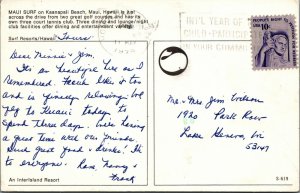 MAUI SURF on Kaanapali Beach, Maui, Hawaii is just
across the drive from two great golf courses and has its
own three court tennis club. Three dining and enjoy night
club facilities offer dining and entertainment variety.
Surf Resorts/Hawaii
Tours
Dear Minnie & Jim,
It's as beautiful here as I
remembered. Frank likes it too
and is finally relaxing. We
fly to Kauai today to
spend three days. We're having
a great time with our friends.
Such great food & drinks! Hi
to everyone. Love, Nancy &
Frank
An InterIsland Resort
INT'L YEAR OF
CHILD
IN YOUR COMMUNITY
PEOPLE'S RIGHT TO
Mr. & Mrs. Jim Wilson
1920 Park Row
Lake Geneva, Wi
53147
S-619